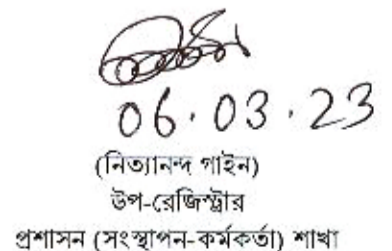 06.03.23
(নিত্যানন্দ গাইন)
উপ-রেজিস্ট্রার
প্রশাসন (সংস্থাপন-কর্মকর্তা) শাখা